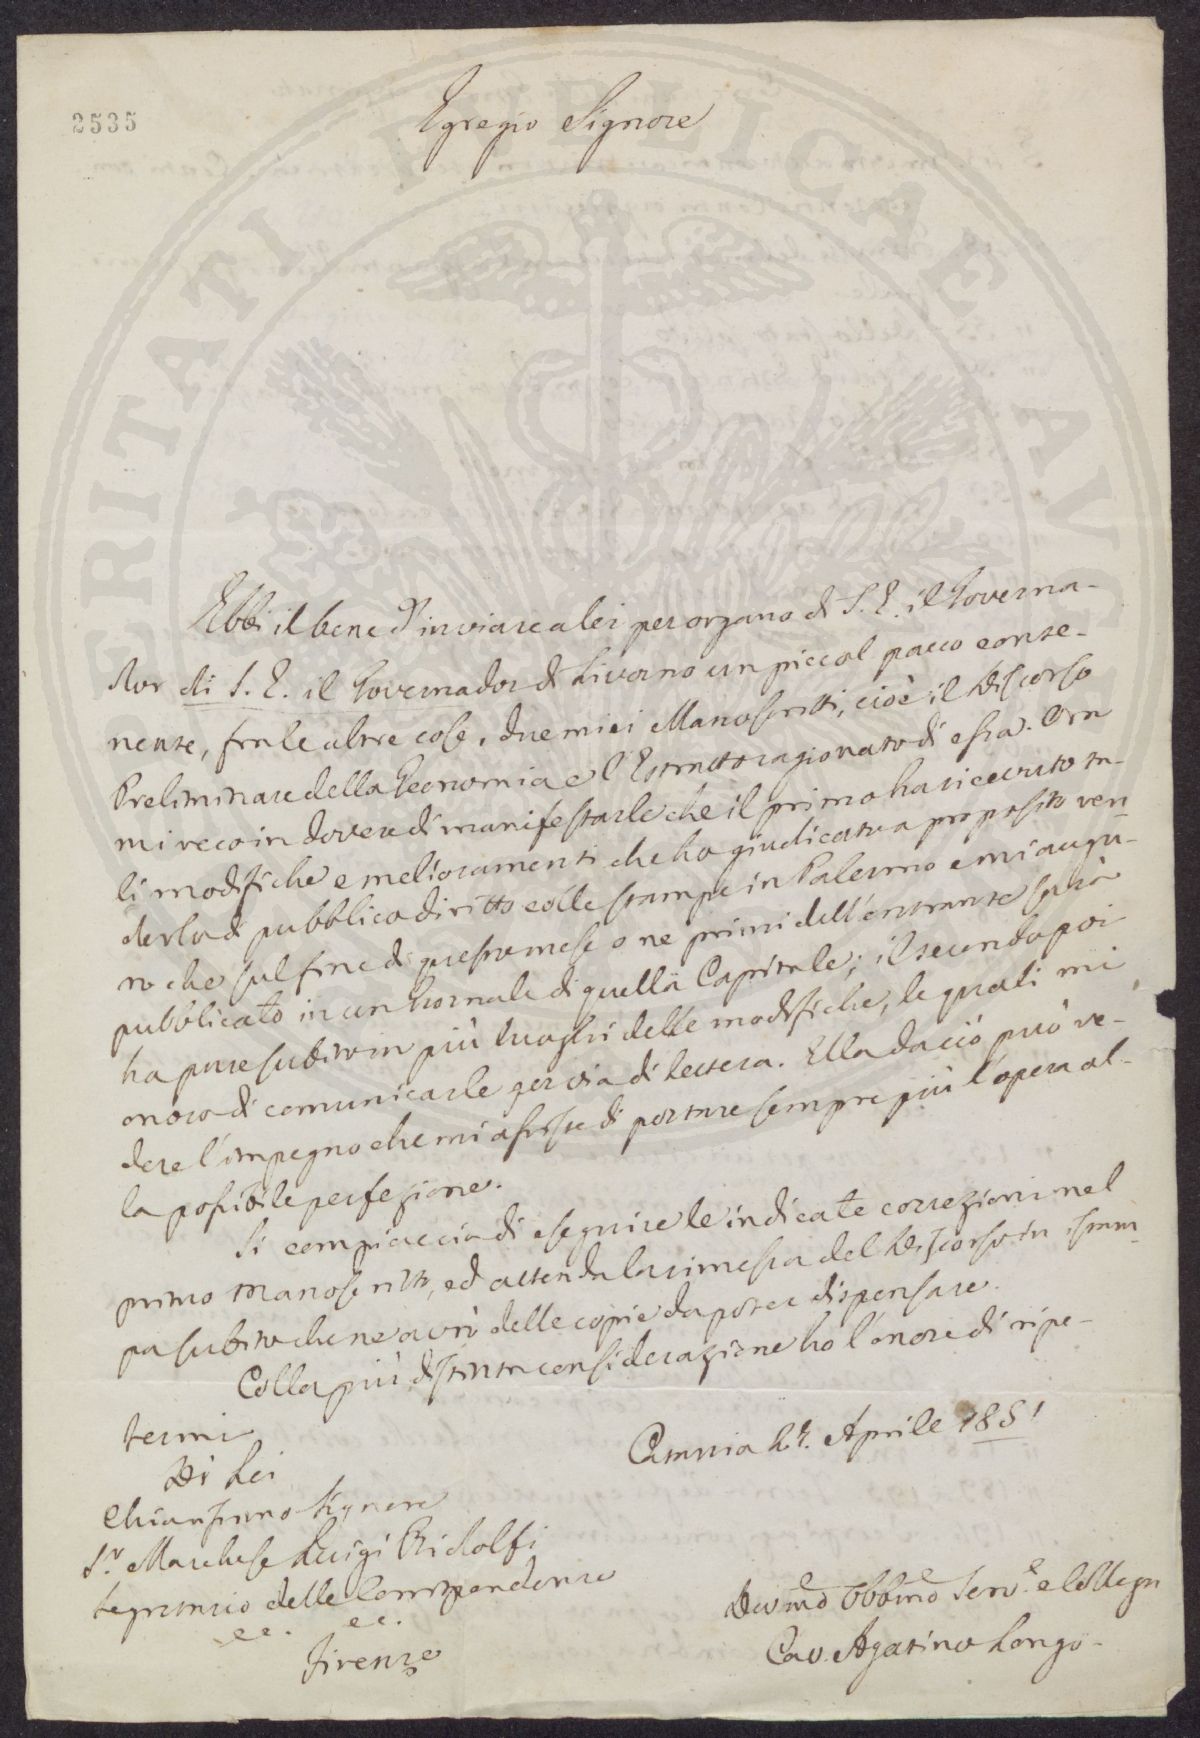 2535
Egregio Signore
Ebbi il bene d'inviare a lei per organo di S. E. il Governa-
dor di S. E. il Governador di Livorno un piccol pacco conte-
nente, fralle altre cose, due miei Manoscritti, cioè il Discorso
Preliminare della Economia e l'Estratto ragionato di essa. Ora
mi reco in dovere di manifestarle che il primo ha ricevuto ta-
li modifiche e melioramenti che ho giudicato a proposito ren
derlo di pubblico diritto colle stampe in Palermo e mi augu-
ro che sul fine di questo mese o ne primi dell'entrante sarà
pubblicato in un Giornale di quella Capitale; il secondo poi
ha pure subito in più luoghi delle modifiche, le quali mi
onoro di comunicarle per via di lettera. Ella da ciò può ve-
dere l'impegno che mi assiste di portare sempre più l'opera al-
la possibile perfezione.
Si compiaccia di eseguire le indicate correzioni nel
primo manoscritto, ed attenda la rimessa del Discorso in istam-
pa subito che ne avrò delle copie da poter dispensare.
Colla più distinta considerazione ho l'onore di ripe-
termi
Di Lei
Catania 24. Aprile 1851
Chiarissimo Signore
Sr. Marchese Luigi Ridolfi
Segretario delle Corrispondenze
ec. ec.
Firenze
Devmo Obbmo Serve e Collega
Cav. Agatino Longo
PERITATI PUBLICAE AUGENDAE